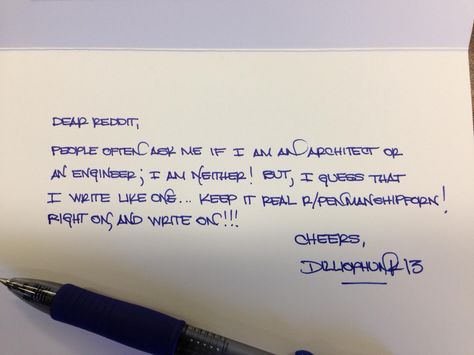 DEAR REDDIT,
PEOPLE OFTEN ASK ME IF I AM AN ARCHITECT OR
AN ENGINEER; I AM NEITHER! BUT, I GUESS THAT
I WRITE LIKE ONE... KEEP IT REAL R/PENMANSHIPPORN!
RIGHT ON, AND WRITE ON!!!
CHEERS,